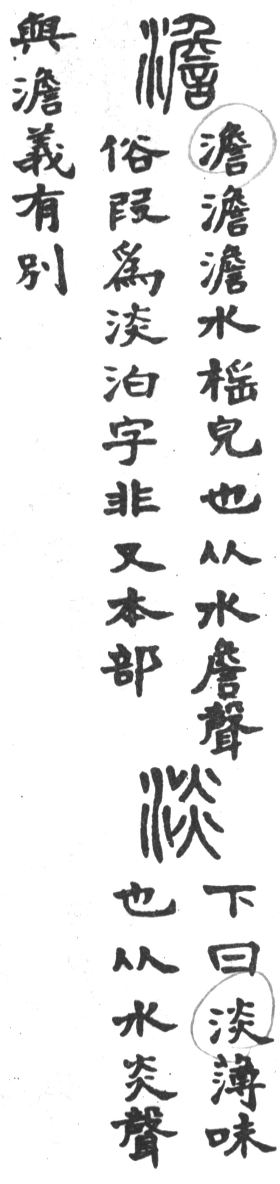 澹
澹澹澹水榣皃也从水詹聲
俗叚爲淡泊字非又本部
淡
下曰淡薄味
也从水炎聲
與澹義有別